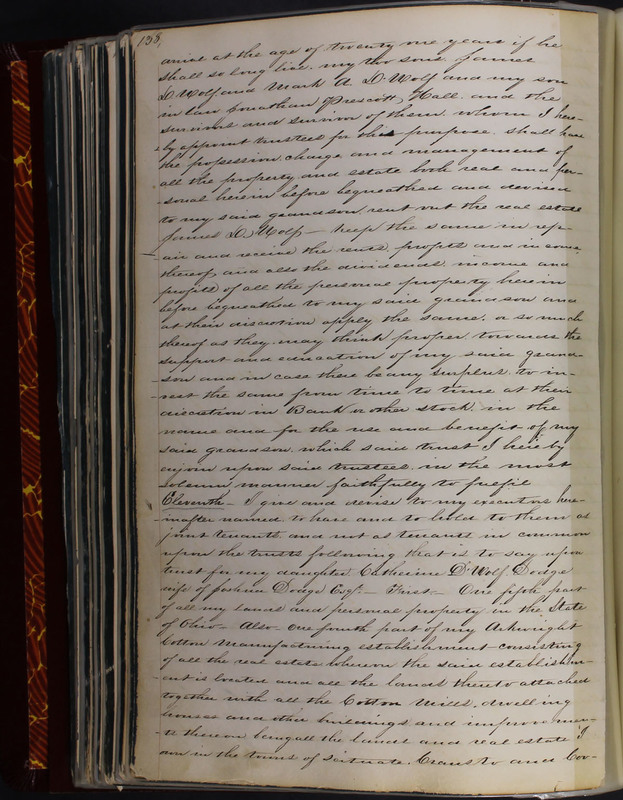 138,
arrive at the age of twenty one years if he
shall so long live. my two sons, James
D. Wolf and Mark A. D. Wolf and my son
in law Jonathan Prescott Hall. and the
survivors and survivor of them. whom I here-
-by appoint trustees for this purpose. shall have
the possession, charge and management of
all the property and estate both real and per-
-sonal herein before bequeathed and devised
to my said grandson, rent out the real estate
James D. Wolf,— keep the same in rep-
-air and receive the rents, profits and income,
thereof, and also the dividends. income and
profits of all the personal property herein
before bequeathed to my said grandson and
at their discretion apply the same. or so much
thereof as they. may think proper. towards the
support and education of my said grand-
-son and in case there be any surplus. to in-
-vest the same from time to time at their
discretion in Bank or other stock. in the
name and for the use and benefit of my
said grandson. which said trust I hereby
enjoin upon said trustees. in the most
solemn manner faithfully to fulfil
Eleventh— I give and devise to my executors here-
inafter named to have and to hold to them as
joint tenants. and not as tenants in common
upon the trusts following that is to say upon
trust for my daughter Catherine D' Wolf Dodge
wife of Joshua Dodge Esqr.— First.— One fifth part
of all my lands and personal property in the State
of Ohio— Also— One fourth part of my Arkwright
Cotton Manufacturing establishment consisting
of all the real estate whereon the said establishm-
-ent is located and all the lands thereto attached
together with all the Cotton Mills, dwelling
houses and other buildings and improvemen-
-ts thereon being all the lands and real estate I
own in the towns of Scituate. Cransto and Cov-